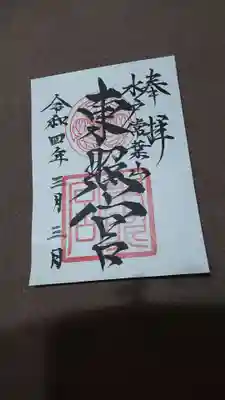 奉拝
水戸常葉山
東照宮
令和四年 三月 三日